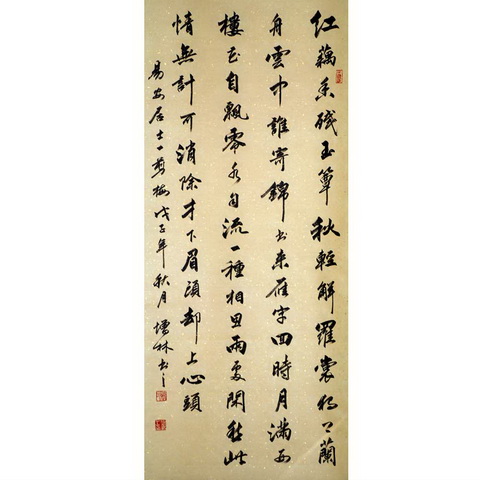 红藕香殘玉簟秋輕解羅裳獨上蘭
舟雲中誰寄錦書来雁字回時月滿西
樓花自飄零水自流一種相思兩處閑愁此
情無計可消除才下眉頭却上心頭
易安居士一剪梅戊子年秋月增林書之